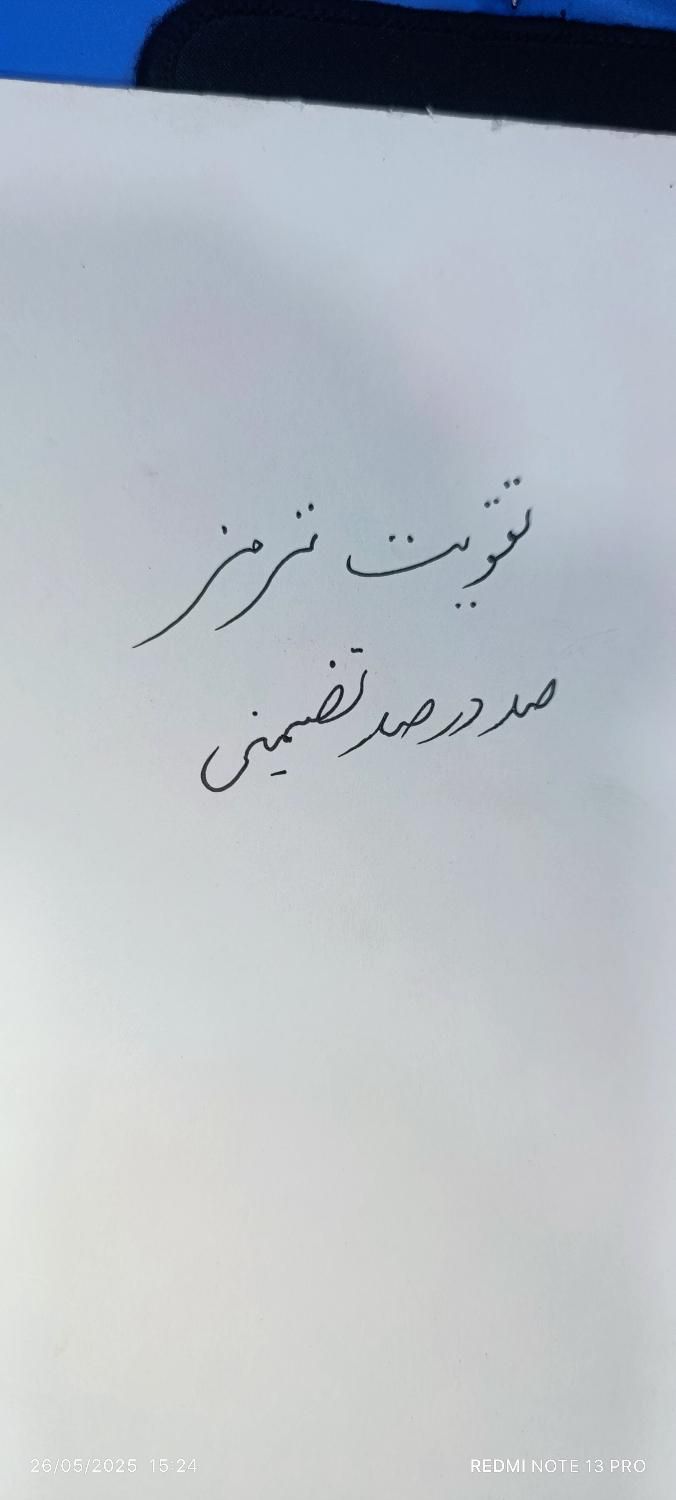 تقویت ترمز
صد در صد تضمینی
26/05/2025 15:24
REDMI NOTE 13 PRO